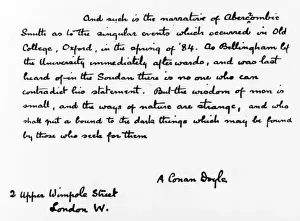 And such is the narrative of Abercrombie
Smith as to the singular events which occurred in Old
College, Oxford, in the spring of '84. As Bellingham left
the University immediately afterwards, and was last
heard of in the Soudan there is no one who can
contradict his statement. But the wisdom of man is
small, and the ways of nature are strange, and who
shall put a bound to the dark things which may be found
by those who seek for them
A Conan Doyle
2 Upper Wimpole Street
London W.